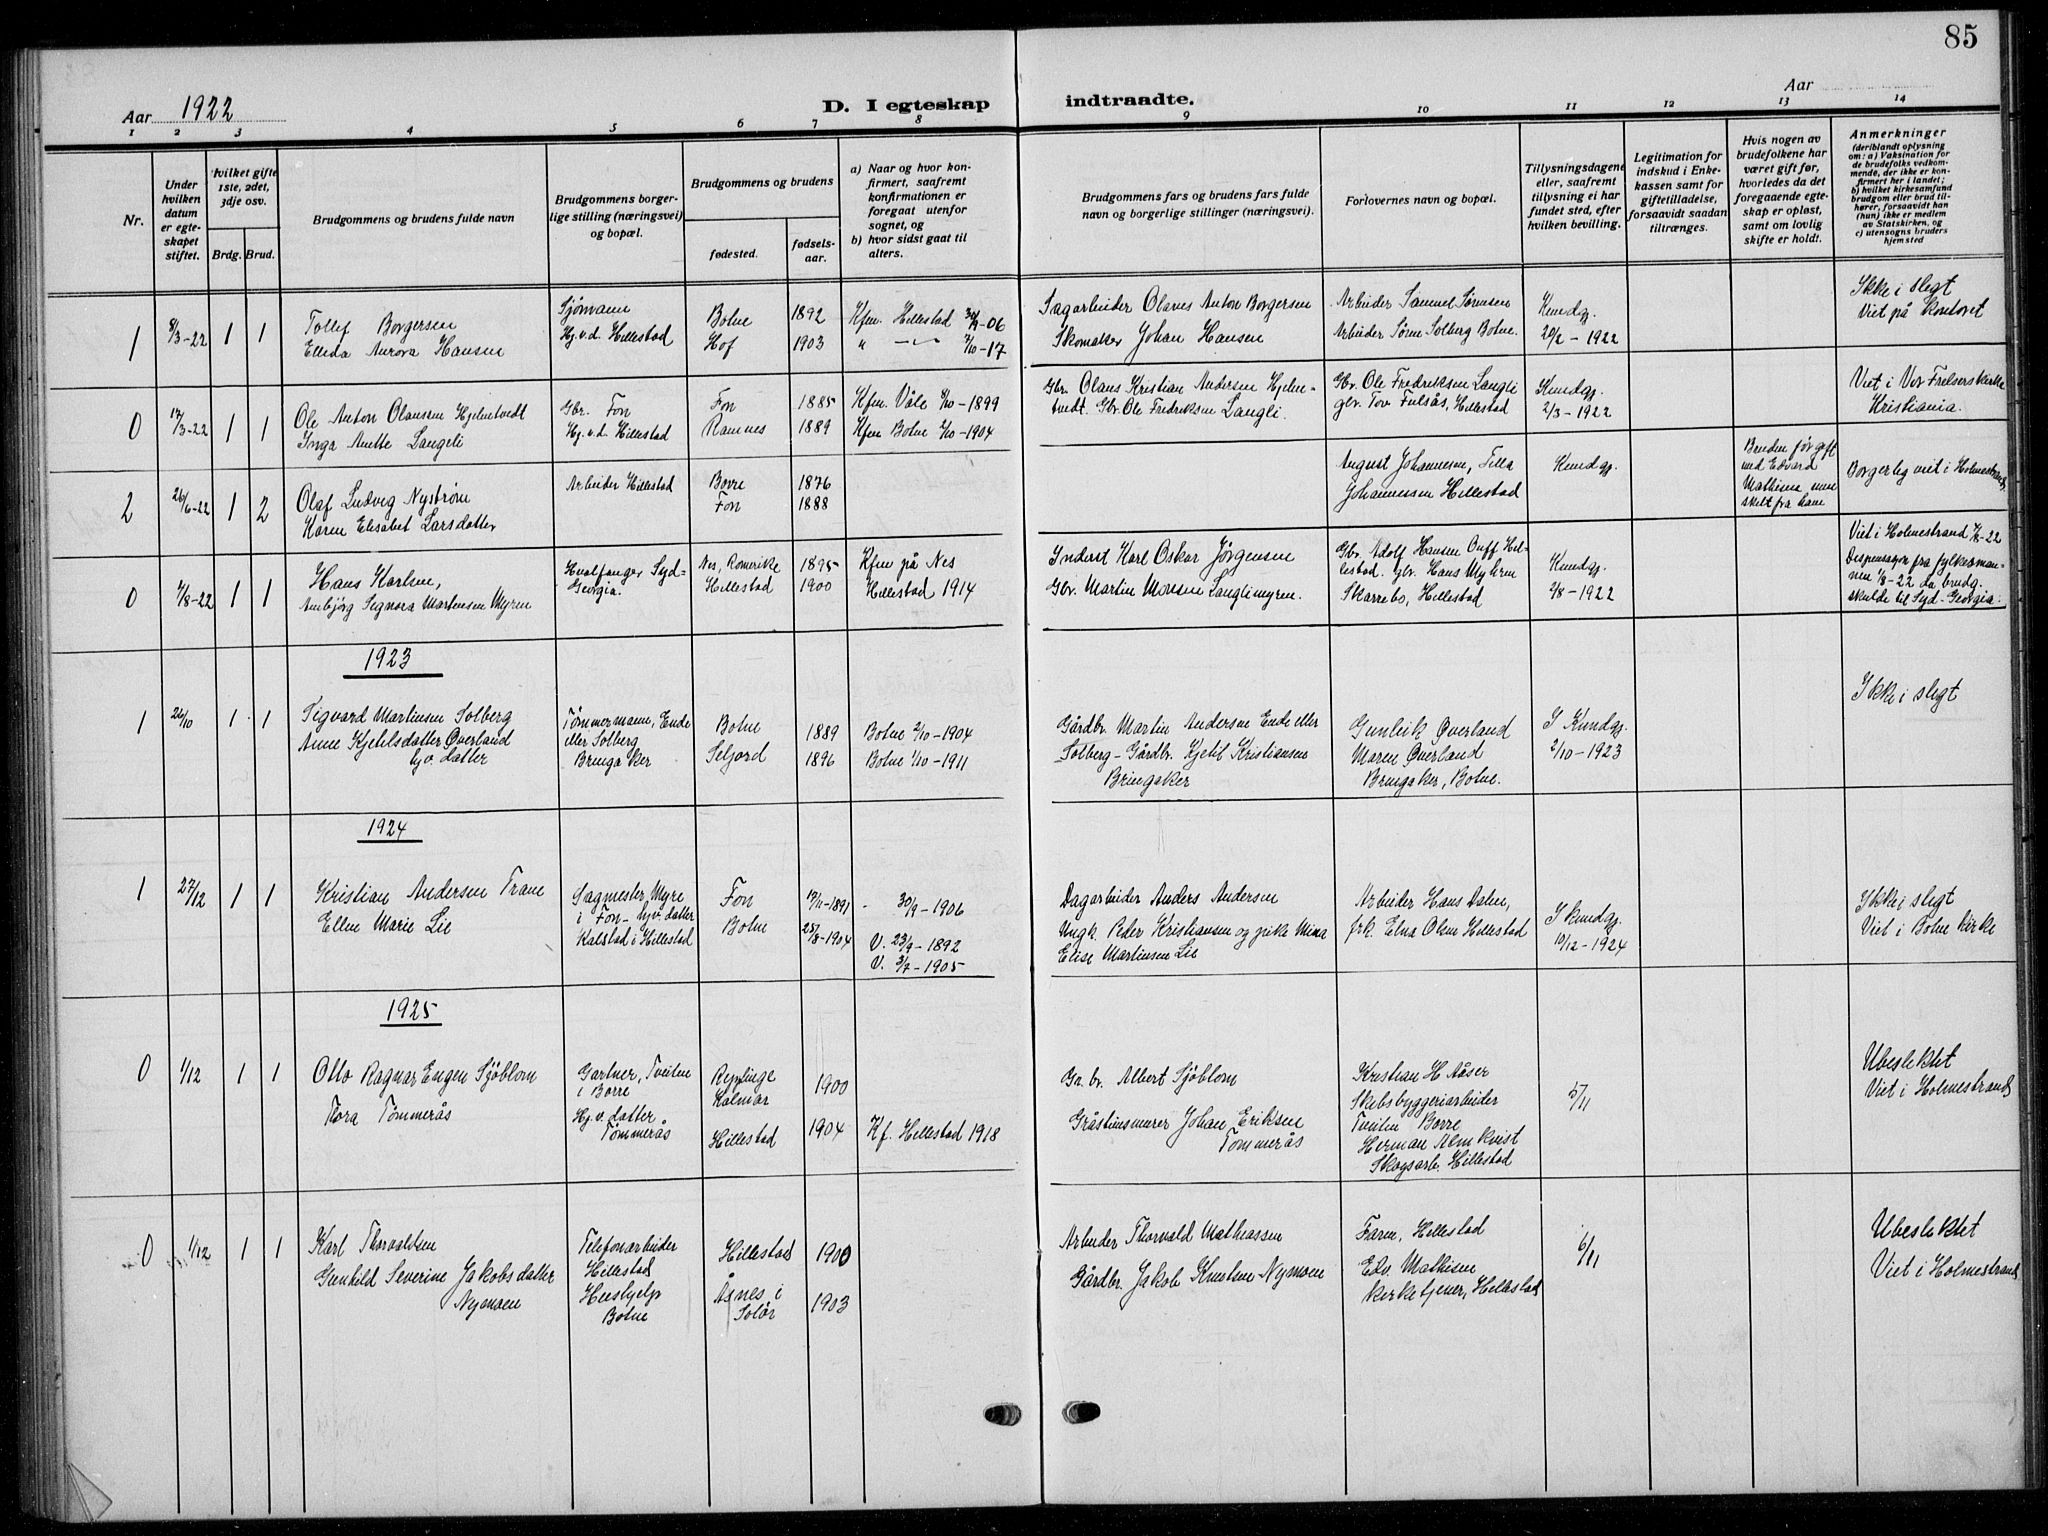 85
Aar 1922
D. I egteskap indtraadte.
Aar
1 2 3 4 5 6 7 8 9 10 11 12 13 14
Nr.
Under hvilken datum er egteskapet stiftet.
Hvilket gifte 1ste, 2det, 3dje osv.
Brdg. Brud.
Brudgommens og brudens fulde navn
Brudgommens borgerlige stilling (næringsvei) og bopæl.
Brudgommens og brudens
fødested.
fødselsaar.
a) Naar og hvor konfirmert, saafremt konfirmationen er foregaat utenfor sognet, og
b) hvor sidst gaat til alters.
Brudgommens fars og brudens fars fulde navn og borgerlige stillinger (næringsvei).
Forlovernes navn og bopæl.
Tillysningsdagene eller, saafremt tillysning ei har fundet sted, efter hvilken bevilling.
Legitimation for indskud i Enkekassen samt for giftetilladelse, forsaavidt saadan tiltrænges.
Hvis nogen av brudefolkene har været gift før, hvorledes da det foregaaende egteskap er opløst, samt om lovlig skifte er holdt.
Anmerkninger
(deriblandt oplysning om: a) Vaksination for de brudefolks vedkommende, der ikke er konfirmert her i landet; b) hvilket kirkesamfund brudgom eller brud tilhører, forsaavidt han (hun) ikke er medlem av Statskirken, og c) utensogns bruders hjemsted
1 8/3-22 1 1
Tollef Borgersen
Elleda Aurora Hansen
Sjømann
Hj.v.d. Hillestad
Botne 1892 Kfm. Hillestad 30/9-06
Hof 1903 " — " — 7/10-17
Sagarbeider Olaves Anton Borgersen
Skomaker Johan Hansen
Arbeider Samuel Sørensen
Arbeider Søren Solberg Botne.
Kundgj.
20/2 - 1922
Ikke i slegt
Viet på Kontoret
0 17/3-22 1 1
Ole Anton Olausen Hjelmtvedt
Inga Anette Langeli
Gbr. Fon
Hj.v.d. Hillestad
Fon 1885 Kfm. Våle 8/10-1899
Ramnes 1889 Kfm Botne 2/10-1904
Gbr. Olaus Kristian Andersen Hjelmtvedt.
Gbr. Ole Fredriksen Langli.
Gbr. Ole Fredriksen Langli
gbr. Tov Fulsås, Hillestad
Kundgj.
2/3-1922
Viet i Vor Frelsers kirke
Kristiania.
2 26/6-22 1 2
Olaf Ludvig Nystrøm
Karen Elisabet Larsdatter
Arbeider Hillestad
Borre 1876
Fon 1888
August Johannesen, Tilla
Johannessen Hillestad
Kundgj.
Bruden før gift
med Edvard
Mathisen men
skilt fra ham
Borgerlig viet i Holmestrand.
0 4/8-22 1 1
Hans Karlsen,
Ambjörg Signora Martensen Myren
Hvalfanger Syd-
Georgia.
Nes, Romerike 1895 Kfm på Nes
Hillestad 1900 Hillestad 1914
Inderst Karl Oskar Jörgensen
Gbr. Martin Monsen Langlimyren.
Gbr. Adolf Hansen Ouff Hil-
lestad. gbr. Hans Myhren
Skarrebo, Hillestad
Kundgj.
2/8-1922
Viet i Holmestrand 4/8-22
Dispensasjon fra fylkesman-
nen 1/8-22 da brudg.
skulde til Syd-Georgia.
1923
1 26/10 1 1
Sigvard Martinsen Solberg
Anne Kjetelsdatter Överland
hjv. datter
Tømmermann, Ende
eller Solberg
Bringaker
Botne 1889 Botne 2/10-1904
Seljord 1896 Botne 1/10-1911
Gårdbr. Martin Andersen Ende eller
Solberg - Gårdbr. Kjetil Kristiansen
Bringaker
Gunleik Överland
Maren Överland
Bringaker, Botne.
I Kundgj.
2/10-1923
Ikke i slegt
1924
1 27/12 1 1
Kristian Andersen Trane
Ellen Marie Lie
Sagmester, Myre
i Fon - hjv. datter
Kalstad i Hillestad
Fon 17/11-1891 - 30/9-1906
Botne 25/8-1904 V. 23/9-1892
V. 3/7-1905
Dagarbeider Anders Andersen
Ungk. Peder Kristiansen og pike Mina
Elise Martinsen Lie
Arbeider Hans Dalen,
frk. Elna Olsen Hillestad
I kundgj.
10/12-1924
Ikke i slegt
Viet i Botne kirke
1925
0 1/12 1 1
Otto Ragnar Engen Sjöblom
Tora Tømmerås
Gartner, Tveiten
i Borre
Hj.v. datter
Tømmerås
Kalmar 1900
Hillestad 1904 Kf. Hillestad 1918
Albert Sjöblom
Gråstensmurer Johan Eriksen
Tømmerås
Kristian H. Aåser
Skibsbyggeriarbeider
Tveiten Borre
Herman Almkvist
Skogsarb. Hillestad
5/11
Ubeslektet
Viet i Holmestrand
0 1/12 1 1
Karl Thorvaldsen
Gunhild Severine Jakobsdatter
Nymoen
Telefonarbeider
Hillestad
Hushjelp
Botne
Hillestad 1900
Åsnes i
Solör 1903
Arbeider Thorvald Mathiassen
Gårdbr. Jakob Knutsen Nymoen
Faren, Hillestad
Edv. Mathisen
kirketjener, Hillestad
6/11
Ubeslektet
Viet i Holmestrand